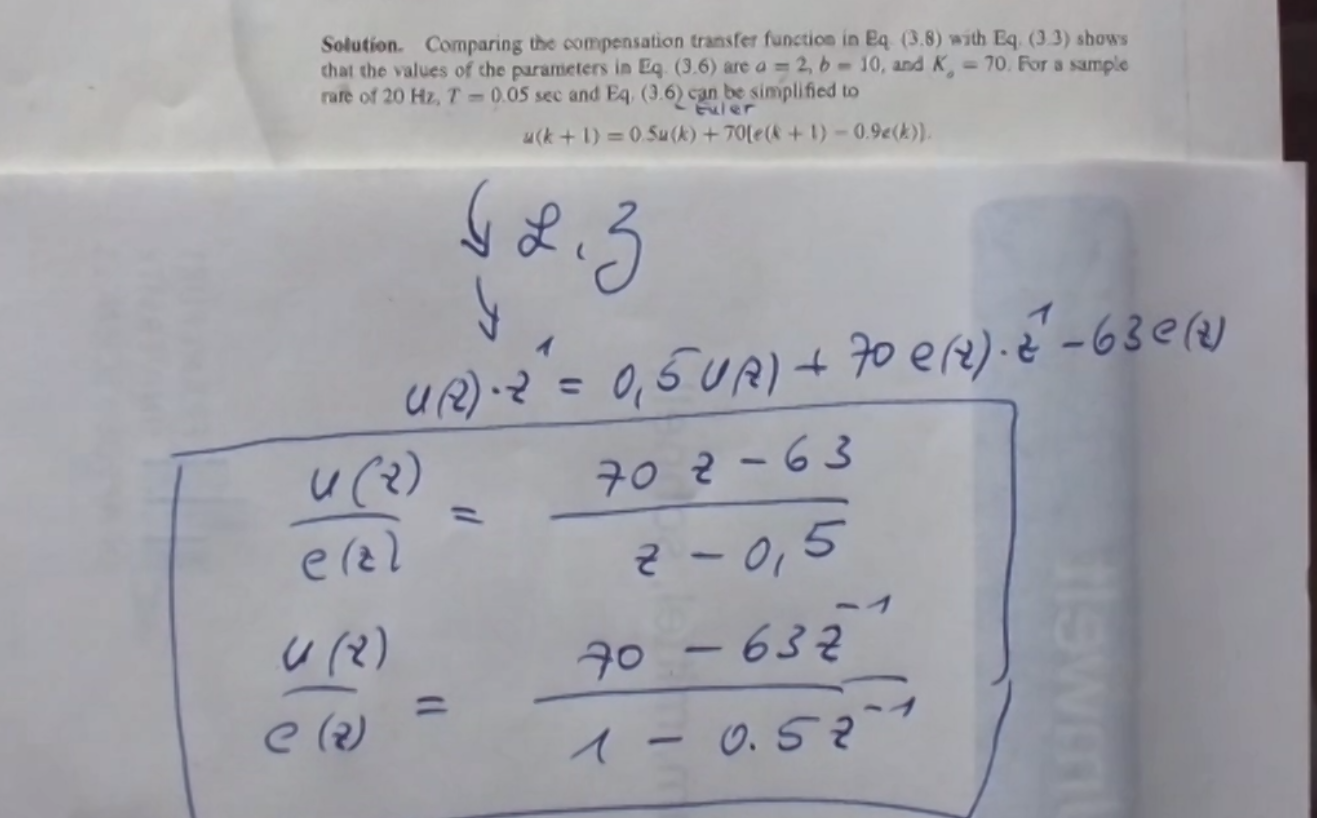 Solution. Comparing the compensation transfer function in Eq. (3.8) with Eq. (3.3) shows
that the values of the parameters in Eq. (3.6) are a = 2, b = 10, and K_o = 70. For a sample
rate of 20 Hz, T = 0.05 sec and Eq. (3.6) can be simplified to
Euler
u(k + 1) = 0.5u(k) + 70[e(k + 1) − 0.9e(k)].
↓ ℒ, ʒ
↓
u(z)·z¹ = 0,5 U(z) + 70 e(z)·z¹ − 63 e(z)
u(z)/e(z) = (70 z − 63)/(z − 0,5)
u(z)/e(z) = (70 − 63z⁻¹)/(1 − 0.5z⁻¹)